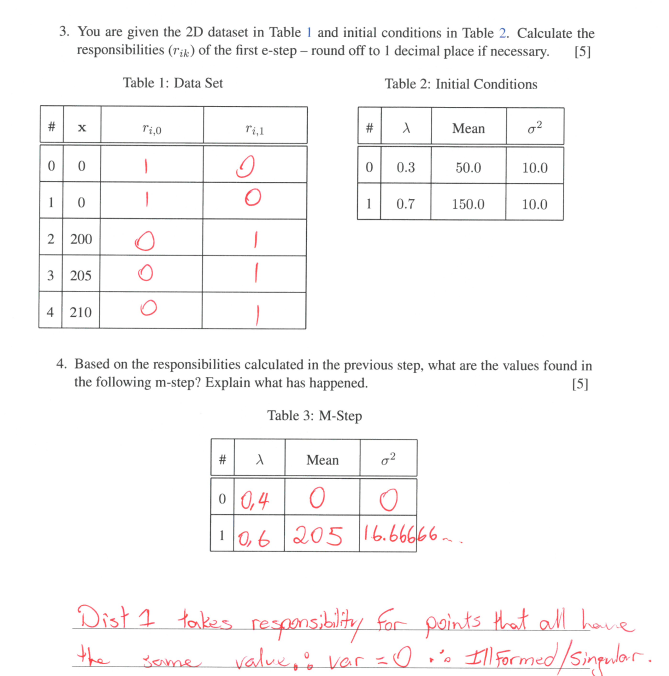 3. You are given the 2D dataset in Table 1 and initial conditions in Table 2. Calculate the
responsibilities (r_ik) of the first e-step – round off to 1 decimal place if necessary. [5]
Table 1: Data Set
# x r_i,0 r_i,1
0 0 1 0
1 0 1 0
2 200 0 1
3 205 0 1
4 210 0 1
Table 2: Initial Conditions
# λ Mean σ²
0 0.3 50.0 10.0
1 0.7 150.0 10.0
4. Based on the responsibilities calculated in the previous step, what are the values found in
the following m-step? Explain what has happened. [5]
Table 3: M-Step
# λ Mean σ²
0 0,4 0 0
1 0,6 205 16.66666~..
Dist 1 takes responsibility for points that all have
the same value, ∴ var = 0 ∴ Ill formed/Singular.